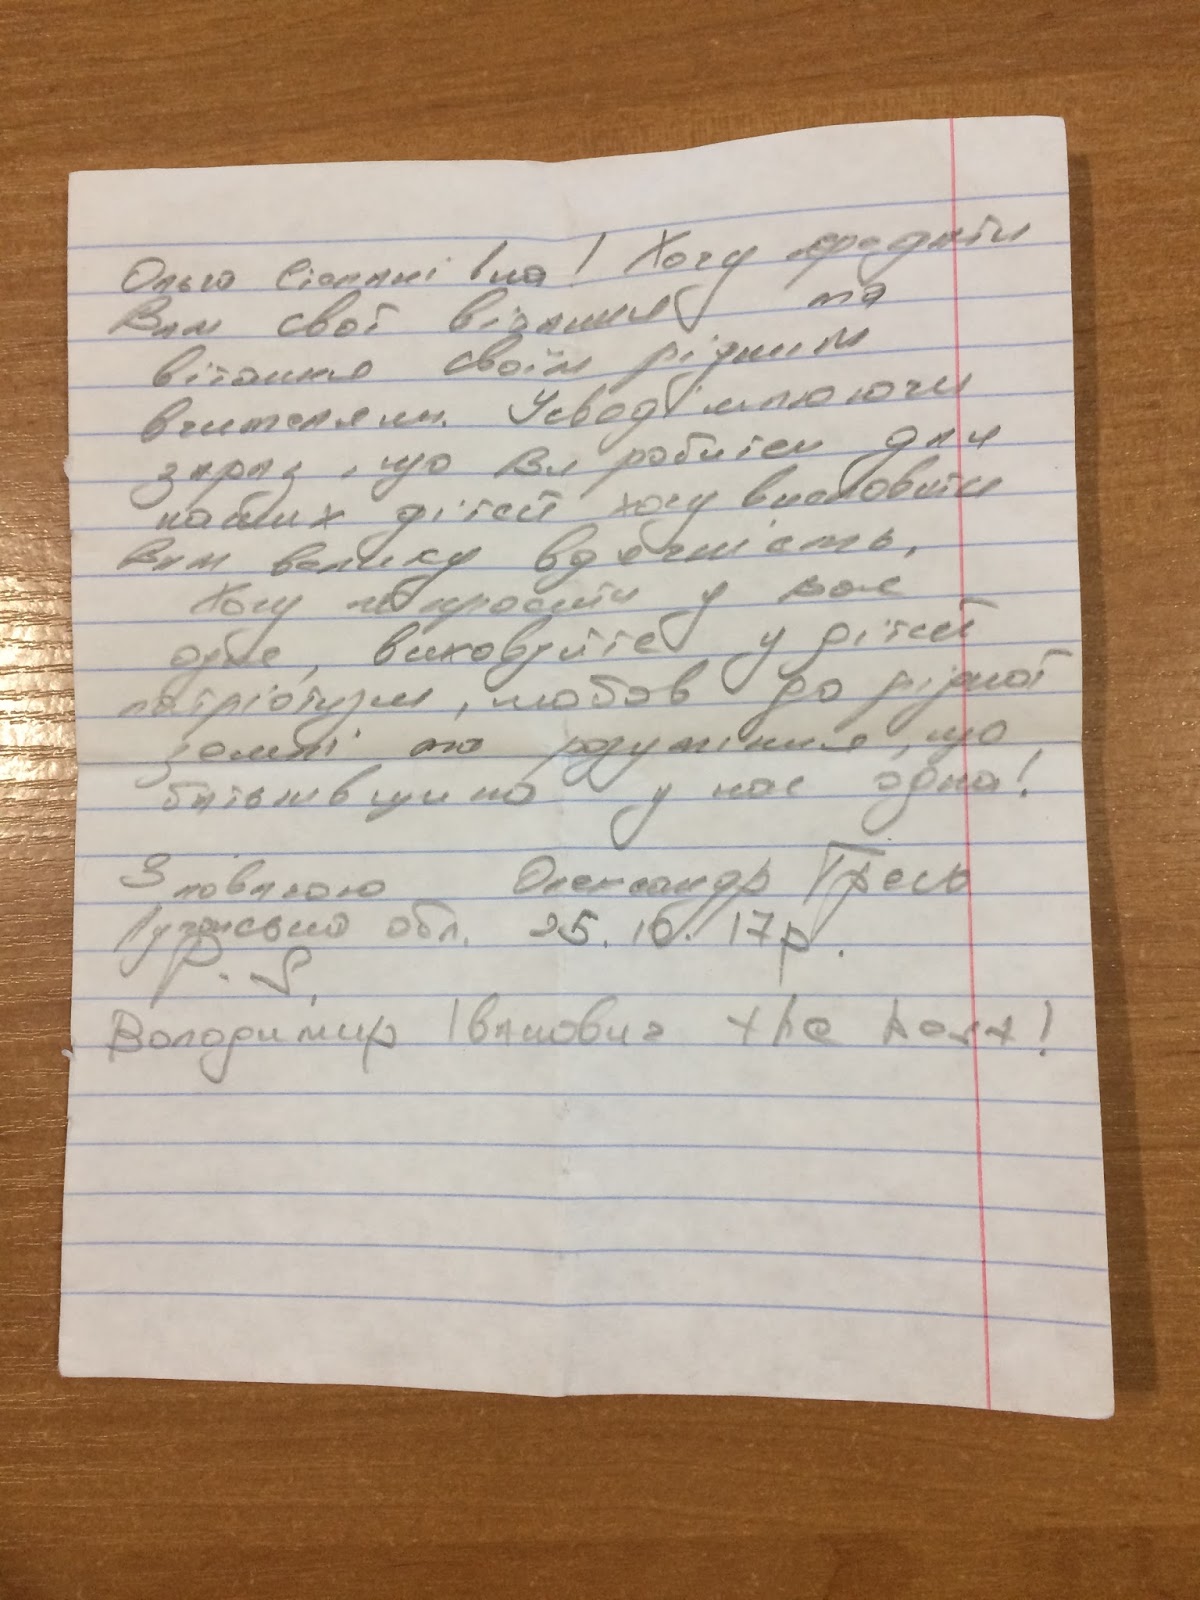 Ольга Степанівна! Хочу предати
Вам свої вітання та
вітання своїм рідним
вчителям. Усвідомлюючи
зараз, що Ви робити для
наших дітей хочу висловити
Вам велику вдячність.
Хочу попросити у вас
одне, виховуйте у дітей
патріотизм, любов до рідної
землі та розуміння, що
батьківщина у нас одна!
З повагою Олександр Гресь
Луганська обл. 25.10.17р.
P.S.
Володимир Іванович